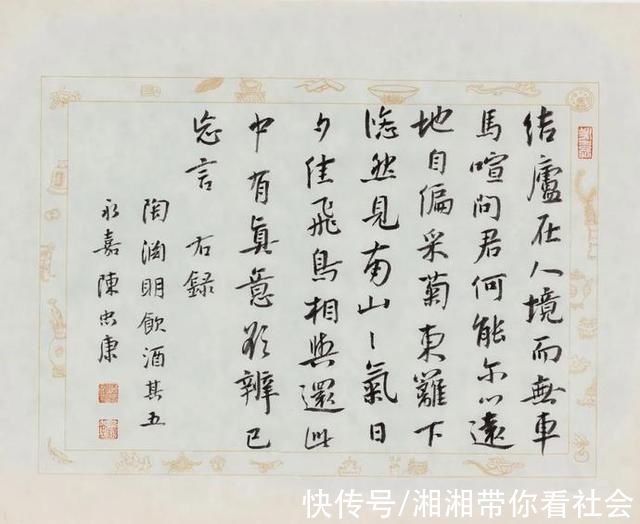 结廬在人境而無車
馬喧问君何能尔心遠
地自偏采菊東籬下
悠然見南山〻氣日
夕佳飛鳥相與還此
中有真意欲辨已
忘言 右録
陶渊明飲酒其五
永嘉陳忠康
快传号/湘湘带你看社会